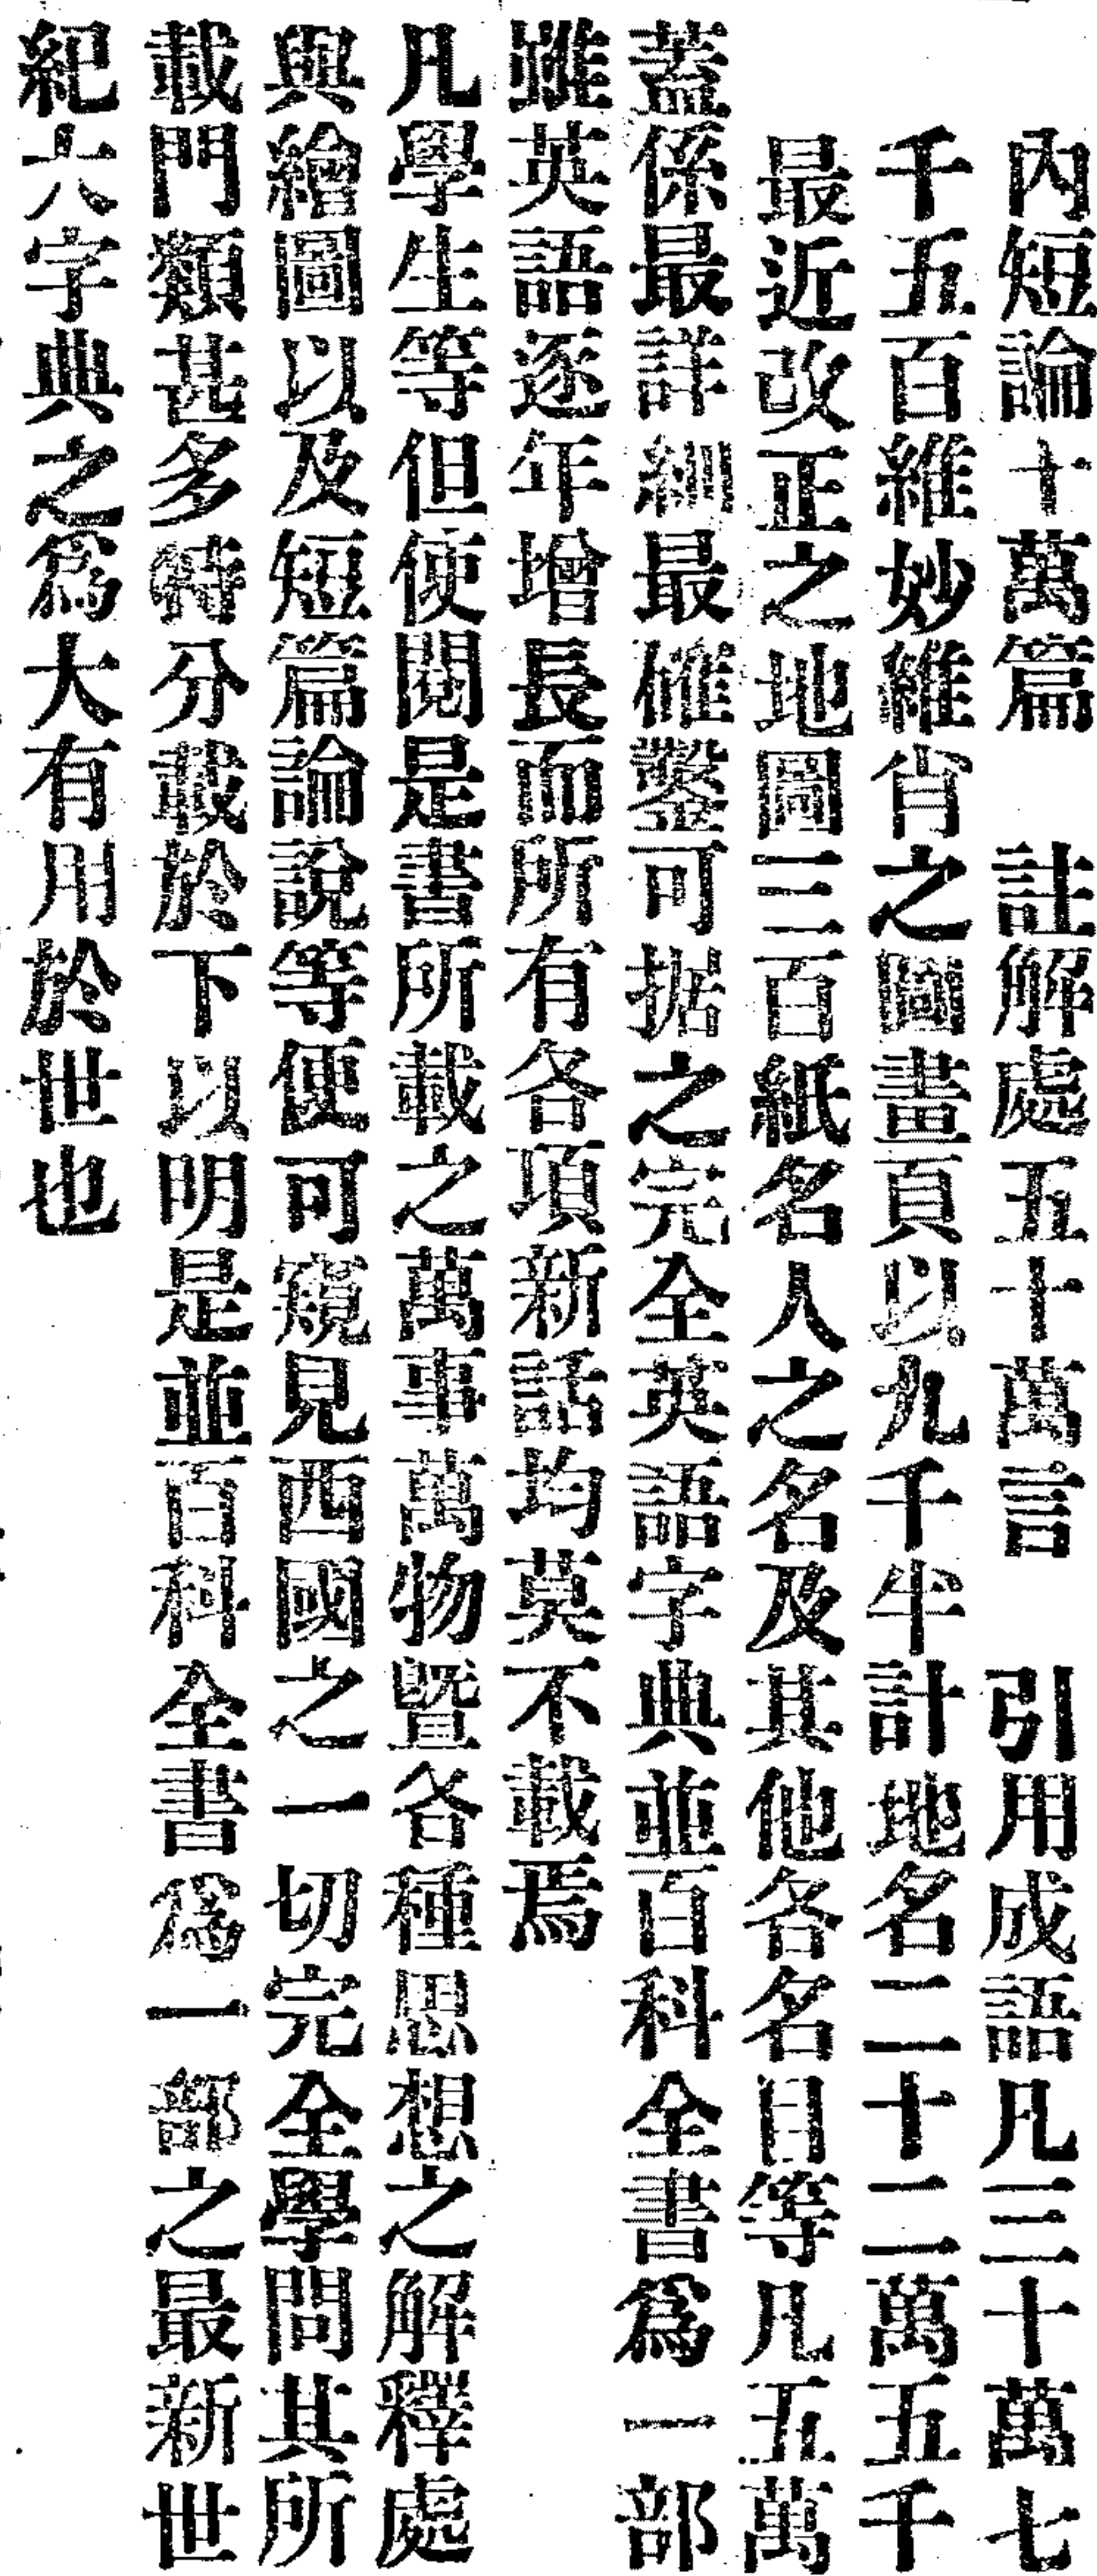 內短論十萬篇　註解處五十萬言　引用成語凡三十萬七
千五百維妙維肖之圖畫頁以九千半計地名二十二萬五千
最近改正之地圖三百紙名人之名及其他各名目等凡五萬
蓋係最詳細最確鑿可据之完全英語字典並百科全書爲一部
雖英語逐年增長而所有各項新話均莫不載焉
凡學生等但使閱是書所載之萬事萬物暨各種思想之解釋處
與繪圖以及短篇論說等便可窺見西國之一切完全學問其所
載門類甚多特分載於下以明是並百科全書爲一部之最新世
紀大字典之爲大有用於世也